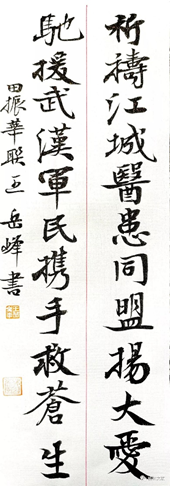 祈禱江城醫患同盟揚大愛
馳援武漢軍民携手救蒼生
田振華聯 岳峰書